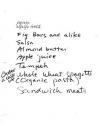 Fig Bars and alike
Salsa
Almond butter
Apple juice
Tempeh
Whole wheat spagetti
(Organic pasta)
Sandwich meats